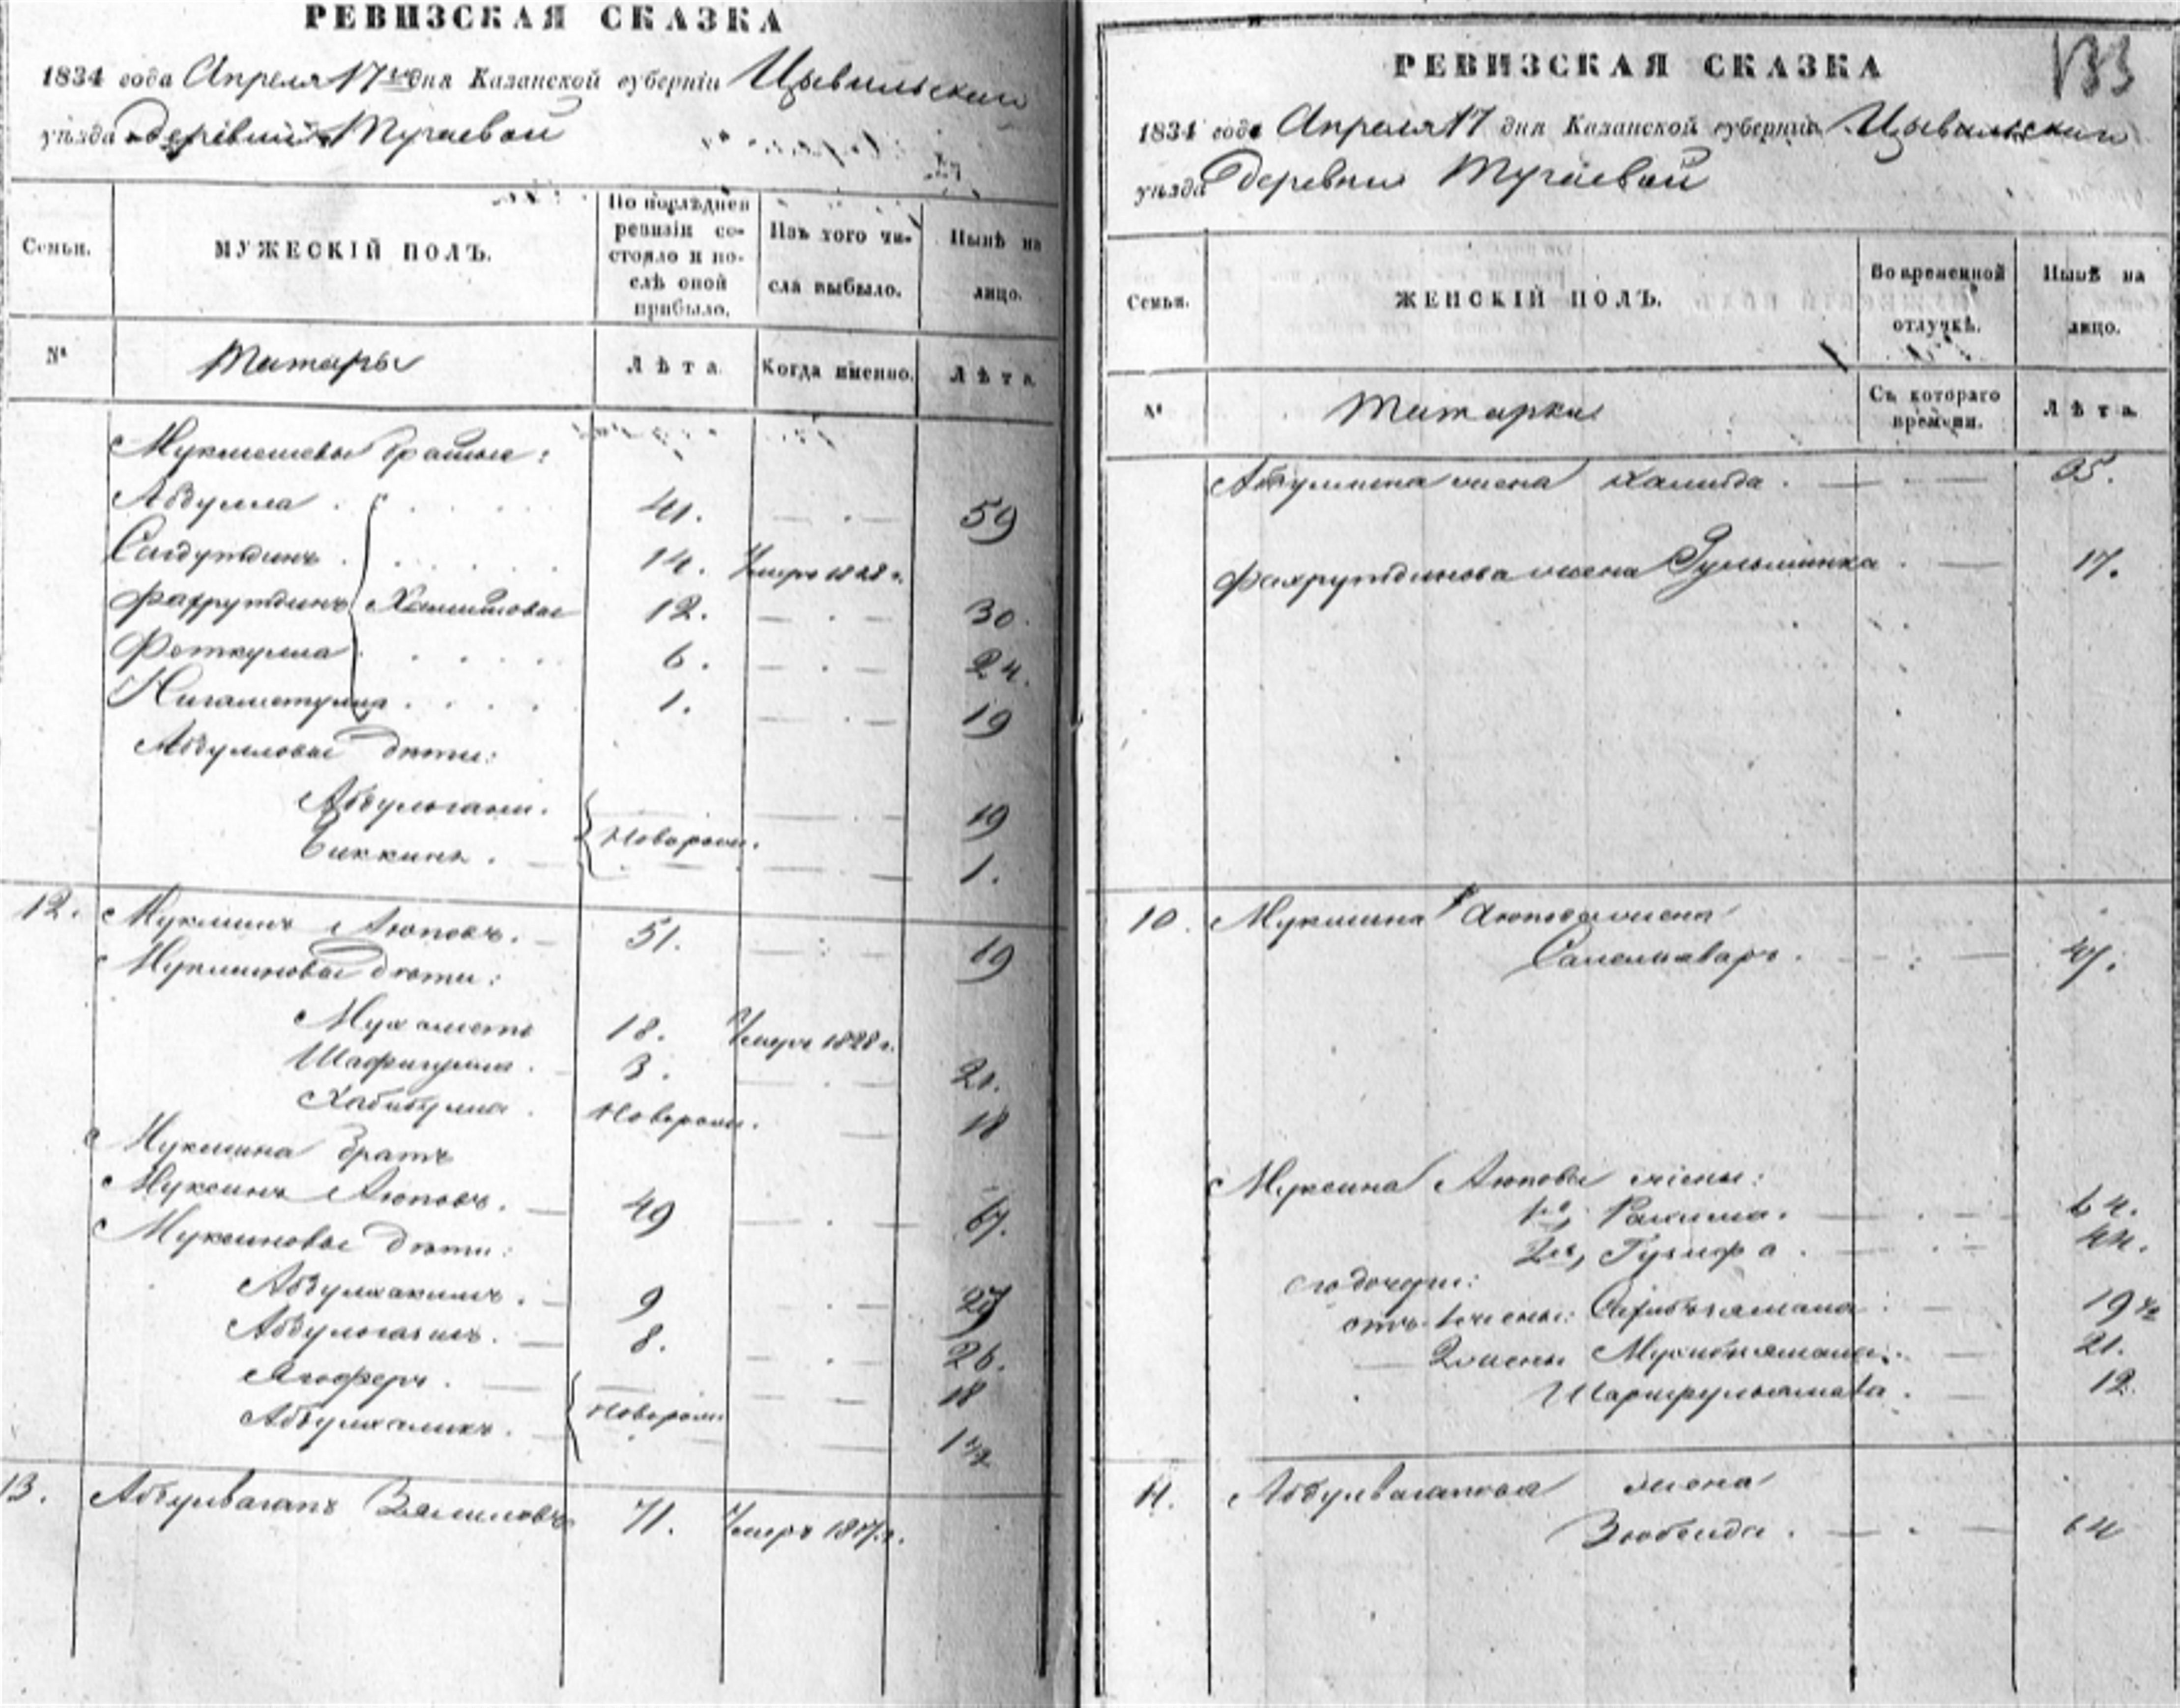 РЕВИЗСКАЯ СКАЗКА
1834 года Апреля 17го дня Казанской губерніи Цывильскаго
уѣзда деревни Тугаевой
Семьи.
МУЖЕСКІЙ ПОЛЪ.
По послѣдней ревизіи состояло и послѣ оной прибыло.
Изъ того числа выбыло.
Нынѣ на лицо.
№
Татары
Лѣта.
Когда именно.
Лѣта.
братья:
Абдулла 41. 59
Сагдутдинъ 14. Умеръ 1828 г.
Фахрутдинъ Халитовы 12. 30
Феткулла 6. 24.
Нигаметулла 1. 19
Абдулловы дѣти:
Абдулгани. 19
Биккинъ. Новорож. 1.
12. Мукминъ Аюповъ. 51. 69
Мукминовы дѣти:
Мухаметъ 18. Умеръ 1828 г.
Шафигулла. 3. 21.
Хабибулла. Новорож. 18
Мукмина братъ
Муксинъ Аюповъ. 49 67.
Муксиновы дѣти:
Абдулхакимъ. 9 27
8. 26.
Ягоферъ. Новорож. 18
Абдулхаликъ. 1 1/2
13. Абдулвагапъ Вялиловъ 71. Умеръ г.
133
РЕВИЗСКАЯ СКАЗКА
1834 года Апреля 17 дня Казанской губерніи Цывильскаго
уѣзда деревни Тугаевой
Семьи.
ЖЕНСКІЙ ПОЛЪ.
Во временной отлучкѣ.
Нынѣ на лицо.
№
Татарки
Съ котораго времени.
Лѣта.
Абдуллина жена Халида. 35.
Фахрутдинова жена 17.
10. Мукмина Аюпова жена
47.
Муксина Аюпова жены:
1я, Рахима. 64.
2я, Гузифа. 44.
его дочери:
отъ 1 жены: 19 1/2
2 жены 21.
12.
11. Абдулвагапова жена
Зюбеида. 64